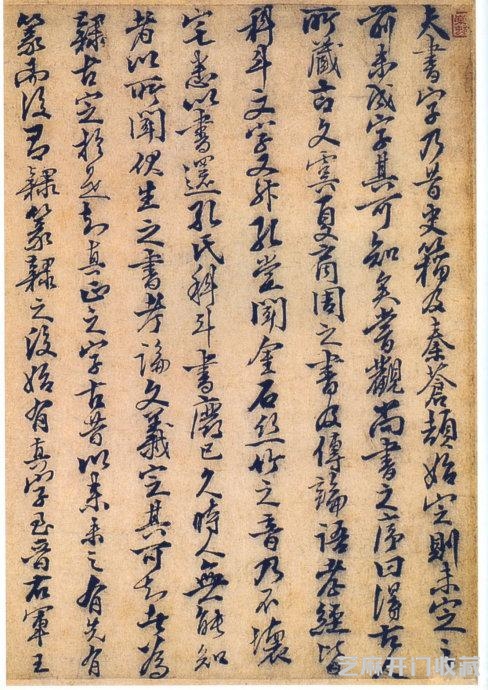 夫書字乃昔史籀及秦蒼頡始定則未定之
前未成字其可知矣嘗觀尚書之序曰得古
所藏古文虞夏商周之書及傳論語孝經皆
科斗文字又升孔堂聞金石絲竹之音乃不壞
宅悉以書還孔氏科斗書廢已久時人無能知
者以所聞伏生之書考論文義定其可知者為
隸古定於是知真正之字古昔以來未之有先有
篆而後有隸篆隸之後始有真字至晉右軍王
艺麻开门收藏